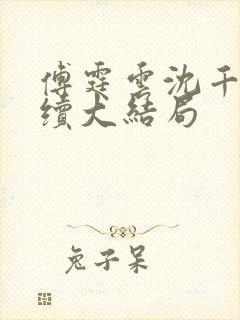 傅霆雲沈千
續大結局
兔子呆